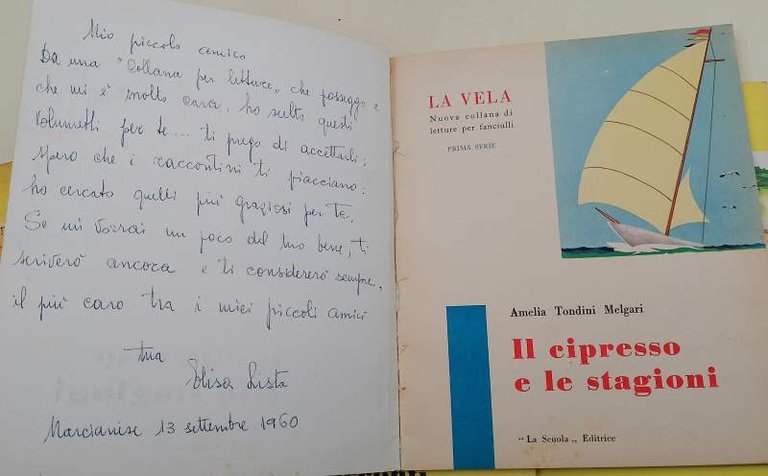 Mio piccolo amico
Da una "Collana per letture„ che posseggo e
che mi è molto cara, ho scelto questi
volumetti per te... ti prego di accettarli;
spero che i raccontini ti piacciano:
ho cercato quelli più graziosi per te.
Se mi vorrai un poco del tuo bene, ti
scriverò ancora e ti considererò sempre,
il più caro tra i miei piccoli amici
tua
Elisa Lista
Marcianise 13 settembre 1960
LA VELA
Nuova collana di
letture per fanciulli
PRIMA SERIE
Amelia Tondini Melgari
Il cipresso
e le stagioni
“ La Scuola „ Editrice